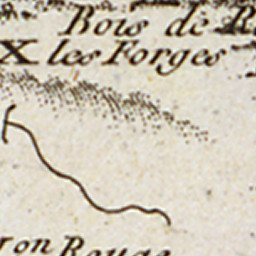 Bois de
X les Forges
on Rouge